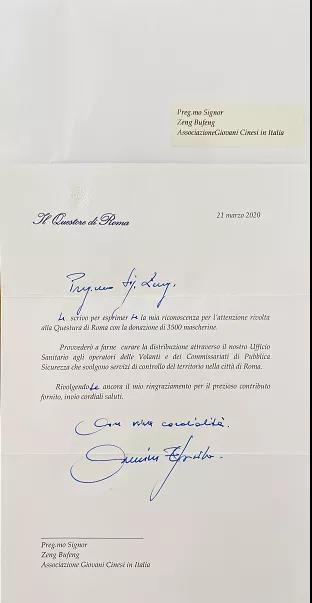 Preg.mo Signor
Zeng Bufeng
AssociazioneGiovani Cinesi in Italia
Il Questore di Roma
21 marzo 2020
Le scrivo per esprimerLe la mia riconoscenza per l'attenzione rivolta
alla Questura di Roma con la donazione di 3500 mascherine.
Provvederò a farne curare la distribuzione attraverso il nostro Ufficio
Sanitario agli operatori delle Volanti e dei Commissariati di Pubblica
Sicurezza che svolgono servizi di controllo del territorio nella città di Roma.
RivolgendoLe ancora il mio ringraziamento per il prezioso contributo
fornito, invio cordiali saluti.
Con viva cordialità.
Preg.mo Signor
Zeng Bufeng
Associazione Giovani Cinesi in Italia